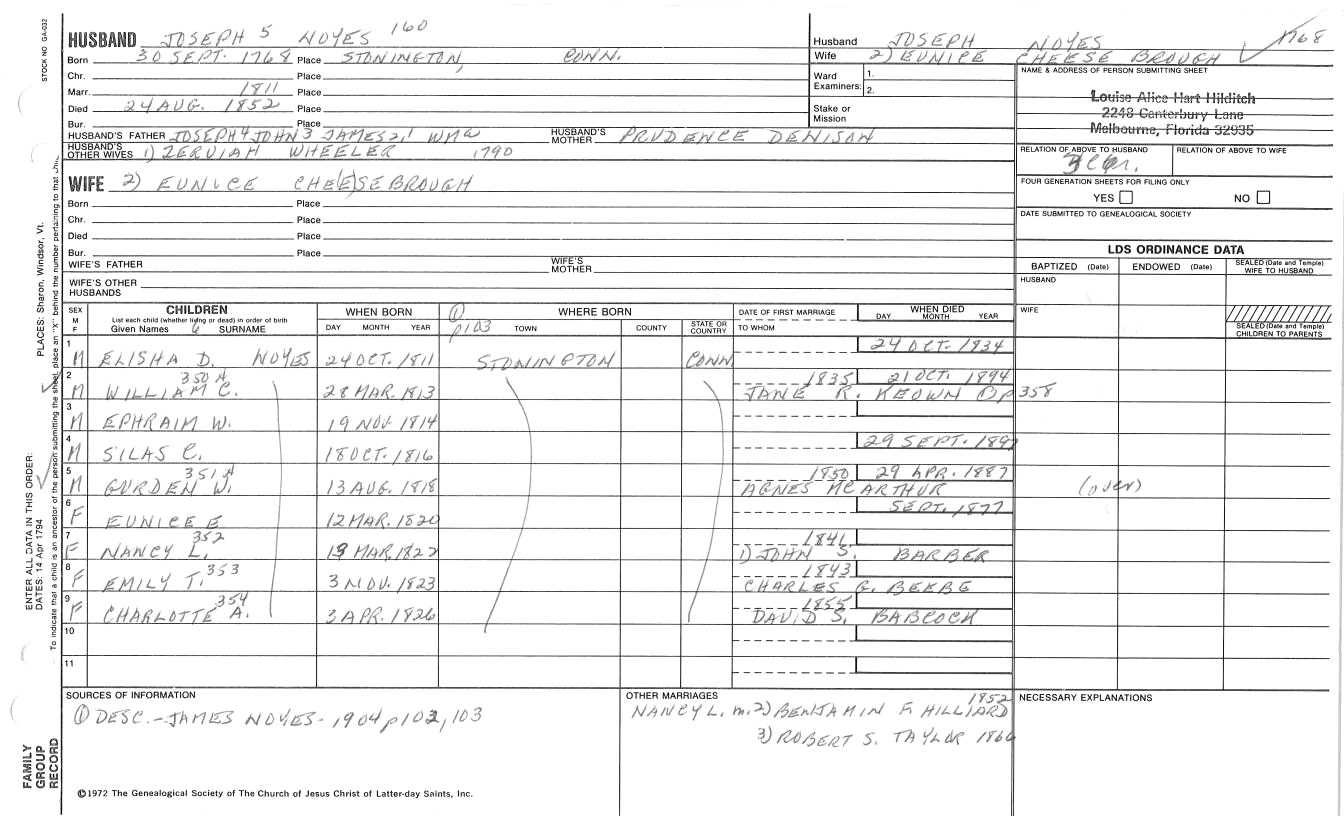 STOCK NO GA-032
HUSBAND JOSEPH 5 NOYES 160
Born 30 SEPT. 1768 Place STONINGTON, CONN.
Chr. Place
Marr. 1811 Place
Died 24 AUG. 1852 Place
Bur. Place
HUSBAND'S FATHER JOSEPH 4 JOHN 3 JAMES 2,1 WM HUSBAND'S MOTHER PRUDENCE DENISON
HUSBAND'S OTHER WIVES 1) ZERUIAH WHEELER 1790
WIFE 2) EUNICE CHE(E)SEBROUGH
Born Place
Chr. Place
Died Place
Bur. Place
WIFE'S FATHER WIFE'S MOTHER
WIFE'S OTHER HUSBANDS
Husband JOSEPH NOYES 1768
Wife 2) EUNICE CHEESE BROUGH
Ward Examiners: 1.
2.
Stake or Mission
NAME & ADDRESS OF PERSON SUBMITTING SHEET
Louise Alice Hart Hilditch
2248 Canterbury Lane
Melbourne, Florida 32935
RELATION OF ABOVE TO HUSBAND RELATION OF ABOVE TO WIFE
FOUR GENERATION SHEETS FOR FILING ONLY
YES NO
DATE SUBMITTED TO GENEALOGICAL SOCIETY
LDS ORDINANCE DATA
BAPTIZED (Date) ENDOWED (Date) SEALED (Date and Temple) WIFE TO HUSBAND
HUSBAND
WIFE
SEALED (Date and Temple) CHILDREN TO PARENTS
SEX M F CHILDREN WHEN BORN 1 WHERE BORN DATE OF FIRST MARRIAGE WHEN DIED
List each child (whether living or dead) in order of birth
Given Names SURNAME DAY MONTH YEAR p103 TOWN COUNTY STATE OR COUNTRY TO WHOM DAY MONTH YEAR
1 24 OCT. 1834
M ELISHA D. NOYES 24 OCT. 1811 STONINGTON CONN
2 350 A 1835 21 OCT. 1894
M WILLIAM C. 28 MAR. 1813 JANE R. KEOWN p358
3
M EPHRAIM W. 19 NOV. 1814
4 29 SEPT. 189
M SILAS C. 18 OCT. 1816
5 351 A 1850 29 APR. 1887
M GURDEN W. 13 AUG. 1818 AGNES MCARTHUR (over)
6 SEPT. 1877
F EUNICE E 12 MAR. 1820
7 352 1846
F NANCY L. MAR. 1822 1) JOHN S. BARBER
8 353 1843
F EMILY T. 3 NOV. 1823 CHARLES G. BEEBE
9 354 1855
F CHARLOTTE A. 3 APR. 1826 DAVID S. BABCOCK
10
11
SOURCES OF INFORMATION
1 DESC.-JAMES NOYES-1904 p102,103
OTHER MARRIAGES 1852
NANCY L. m. 2) BENJAMIN F. HILLIARD
3) ROBERT S. TAYLOR 1866
NECESSARY EXPLANATIONS
©1972 The Genealogical Society of The Church of Jesus Christ of Latter-day Saints, Inc.
ENTER ALL DATA IN THIS ORDER:
DATES: 14 Apr 1794 PLACES: Sharon, Windsor, Vt.
To indicate that a child is an ancestor of the person submitting the sheet, place an "X" behind the number pertaining to that
FAMILY
GROUP
RECORD